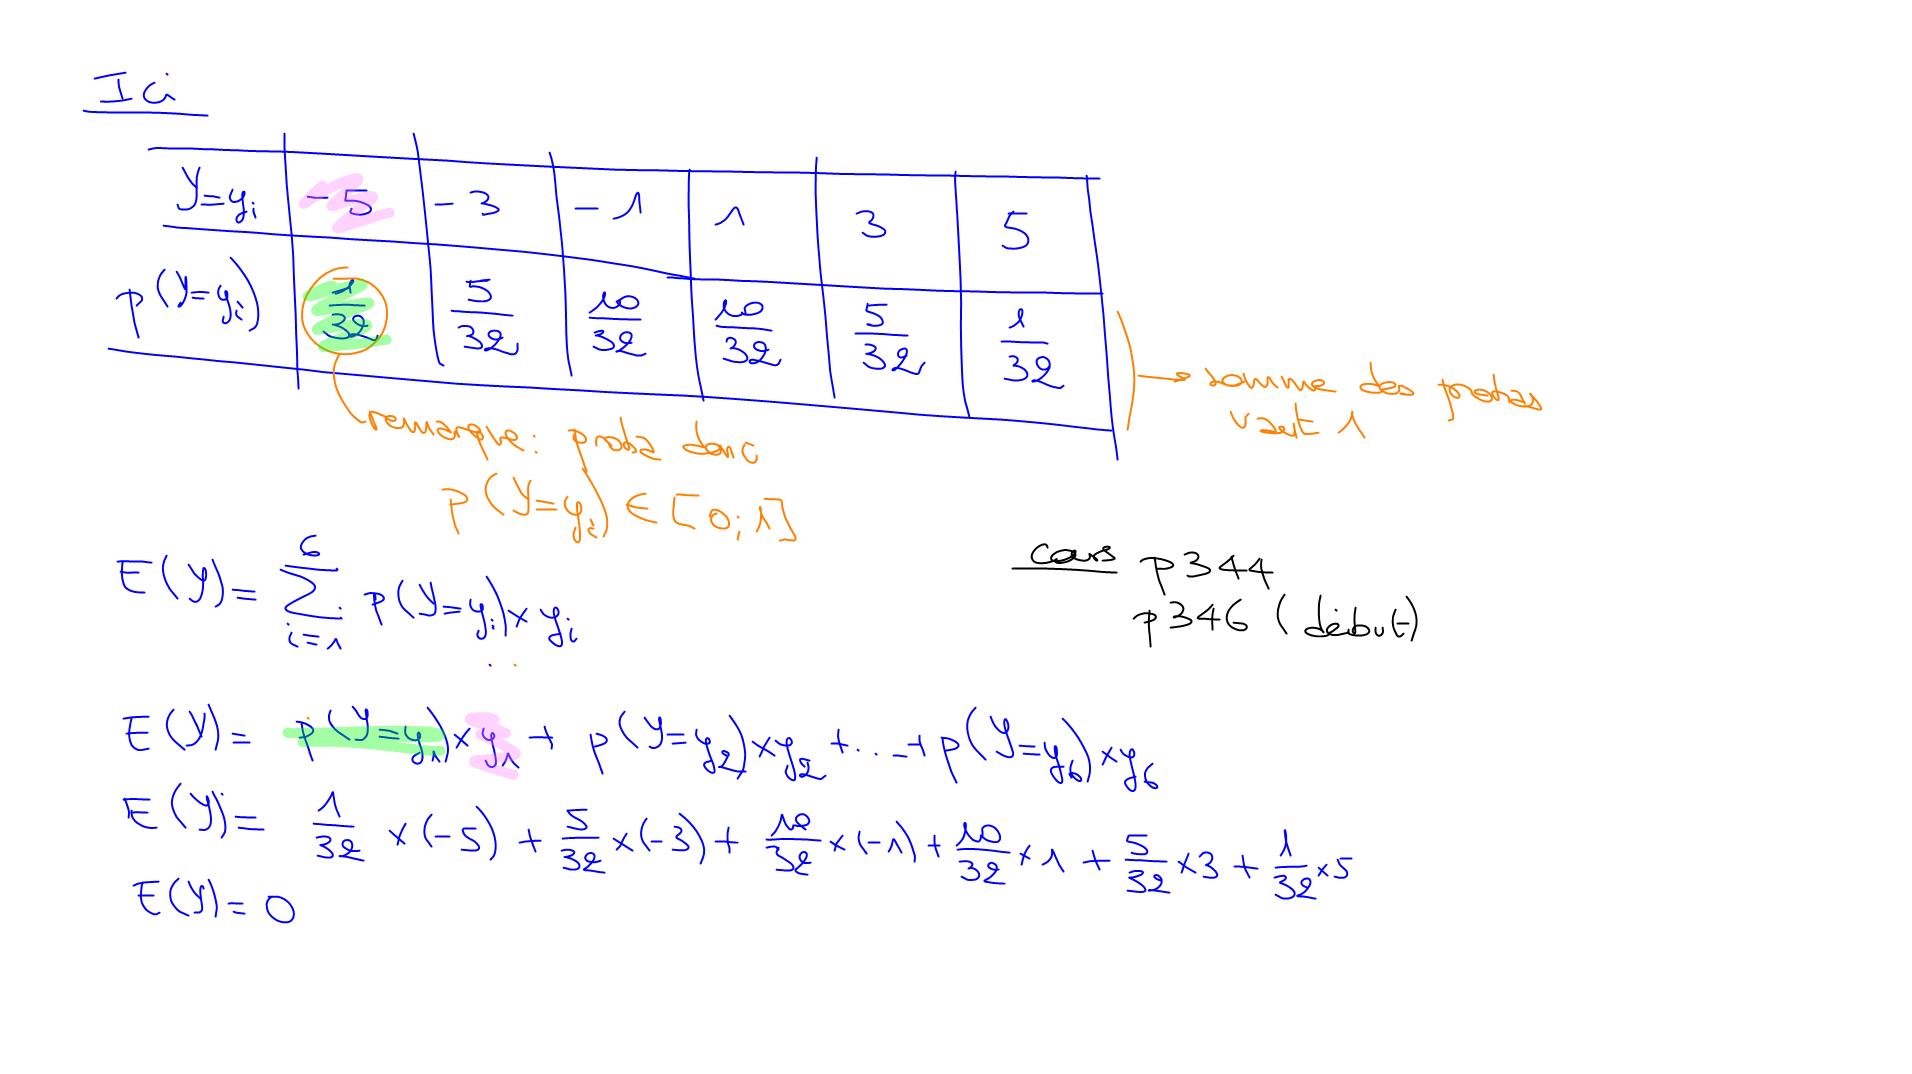 Ici
Y=yi | -5 | -3 | -1 | 1 | 3 | 5
p(Y=yi) | 1/32 | 5/32 | 10/32 | 10/32 | 5/32 | 1/32
→ somme des probas
vaut 1
remarque: proba donc
p(Y=yi) ∈ [0;1]
E(Y)= ∑_{i=1}^{6} p(Y=yi)×yi
cours p344
p346 (début)
E(Y)= p(Y=y1)×y1 + p(Y=y2)×y2 +...+p(Y=y6)×y6
E(Y)= 1/32 ×(-5) + 5/32 ×(-3) + 10/32 ×(-1) + 10/32 ×1 + 5/32 ×3 + 1/32 ×5
E(Y)= 0